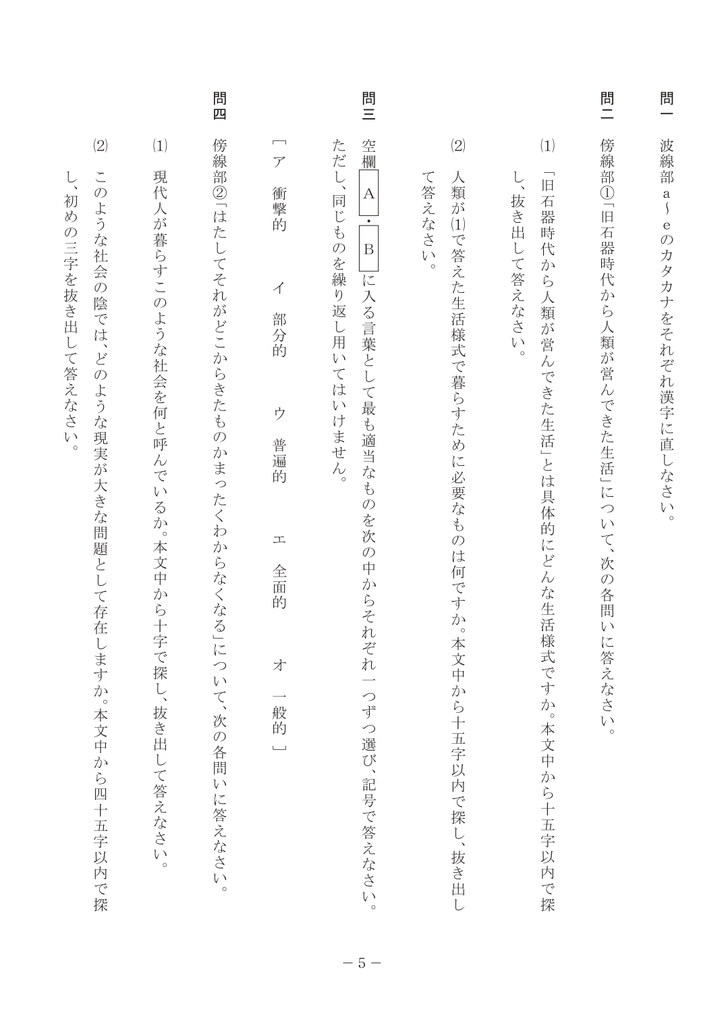 問一　波線部a～eのカタカナをそれぞれ漢字に直しなさい。
問二　傍線部①「旧石器時代から人類が営んできた生活」について、次の各問いに答えなさい。
⑴　「旧石器時代から人類が営んできた生活」とは具体的にどんな生活様式ですか。本文中から十五字以内で探
し、抜き出して答えなさい。
⑵　人類が⑴で答えた生活様式で暮らすために必要なものは何ですか。本文中から十五字以内で探し、抜き出し
て答えなさい。
問三　空欄 A ・ B に入る言葉として最も適当なものを次の中からそれぞれ一つずつ選び、記号で答えなさい。
ただし、同じものを繰り返し用いてはいけません。
［ア　衝撃的　　イ　部分的　　ウ　普遍的　　エ　全面的　　オ　一般的］
問四　傍線部②「はたしてそれがどこからきたものかまったくわからなくなる」について、次の各問いに答えなさい。
⑴　現代人が暮らすこのような社会を何と呼んでいるか。本文中から十字で探し、抜き出して答えなさい。
⑵　このような社会の陰では、どのような現実が大きな問題として存在しますか。本文中から四十五字以内で探
し、初めの三字を抜き出して答えなさい。
－5－